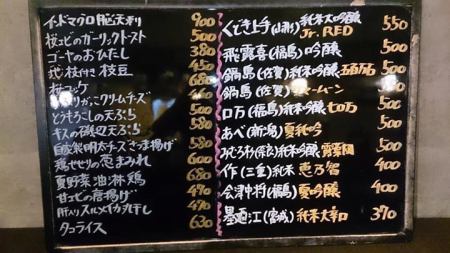 マグロ脳天刺 900
桜エビのガーリックトースト 500
ゴーヤのおひたし 380
枝付き 枝豆 450
680
クリームチーズ 450
とうもろこしの天ぷら 500
キスの磯辺天ぷら 580
自家製明太チーズさつま揚げ 500
鶏せせりの葱まみれ 600
夏野菜油淋鶏 680
甘エビの唐揚げ 470
肝入りスルメイカ丸干し 490
タコライス 630
くどき上手(山形)純米大吟醸 Jr. RED 550
飛露喜(福島)吟醸 500
鍋島(佐賀)純米吟醸 五百万石 500
鍋島(佐賀)サマームーン 500
ロ万(福島)純米吟醸 七ロ万 500
あべ(新潟)夏純吟 500
みむろ杉(奈良)純米吟醸 400
作(三重)純米 恵乃智 400
会津中将(福島)夏吟醸 400
墨廼江(宮城)純米大辛口 370